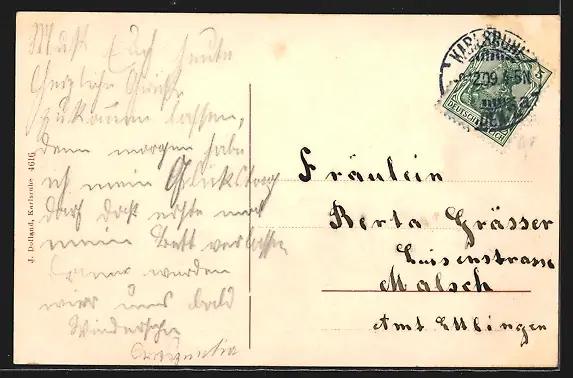 Muß Euch heute
herzliche Grüße
zukommen lassen,
denn morgen habe
ich mein Glückstag
darf das erste mal
mein Bett verlassen
werden
wir uns bald
Wiedersehn
J. Dolland, Karlsruhe 4616
KARLSRUHE
12.09. 4-5N
DEUTSCHES REICH
Fräulein
Berta Grässer
Luisenstrasse
Malsch
Amt Ettlingen